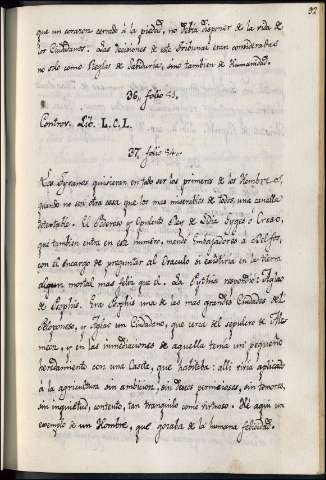 92
que un corazon cerrado á la piedad, no debia disponer de la vida de
los Ciudadanos. Las decisiones de este tribunal eran consideradas
no solo como Reglas de Sabiduria, sino tambien de Humanidad.
36,, folio
Controv. Lib. L. C. L.
37,, folio
Los Tyranos quisieran en todo ser los primeros de los Hombres,
quando no son otra cosa que los mas miserables de todos, una canalla
detestable. El Poderoso y Opulento Rey de Lidia Gyges ó Creso,
que tambien entra en este numero, mandó Embajadores á Delfos,
con el encargo de preguntar al Oraculo si existiria en la tierra
algun mortal mas feliz que el. La Pythia respondió: Aglao
de Psophis. Era Psophis una de las mas grandes Ciudades del
Peloponeso, y Aglao un Ciudadano, que cerca del sepulcro de Alc-
meon, y en las inmediaciones de aquella tenia un pequeño
heredamiento con una Casita, que habitaba: alli vivia aplicado
á la agricultura sin ambicion, sin deseos perniciosos, sin temores,
sin inquietud, contento, tan tranquilo como virtuoso. Hé aqui un
exemplo de un Hombre, que gozaba de la humana felicidad.